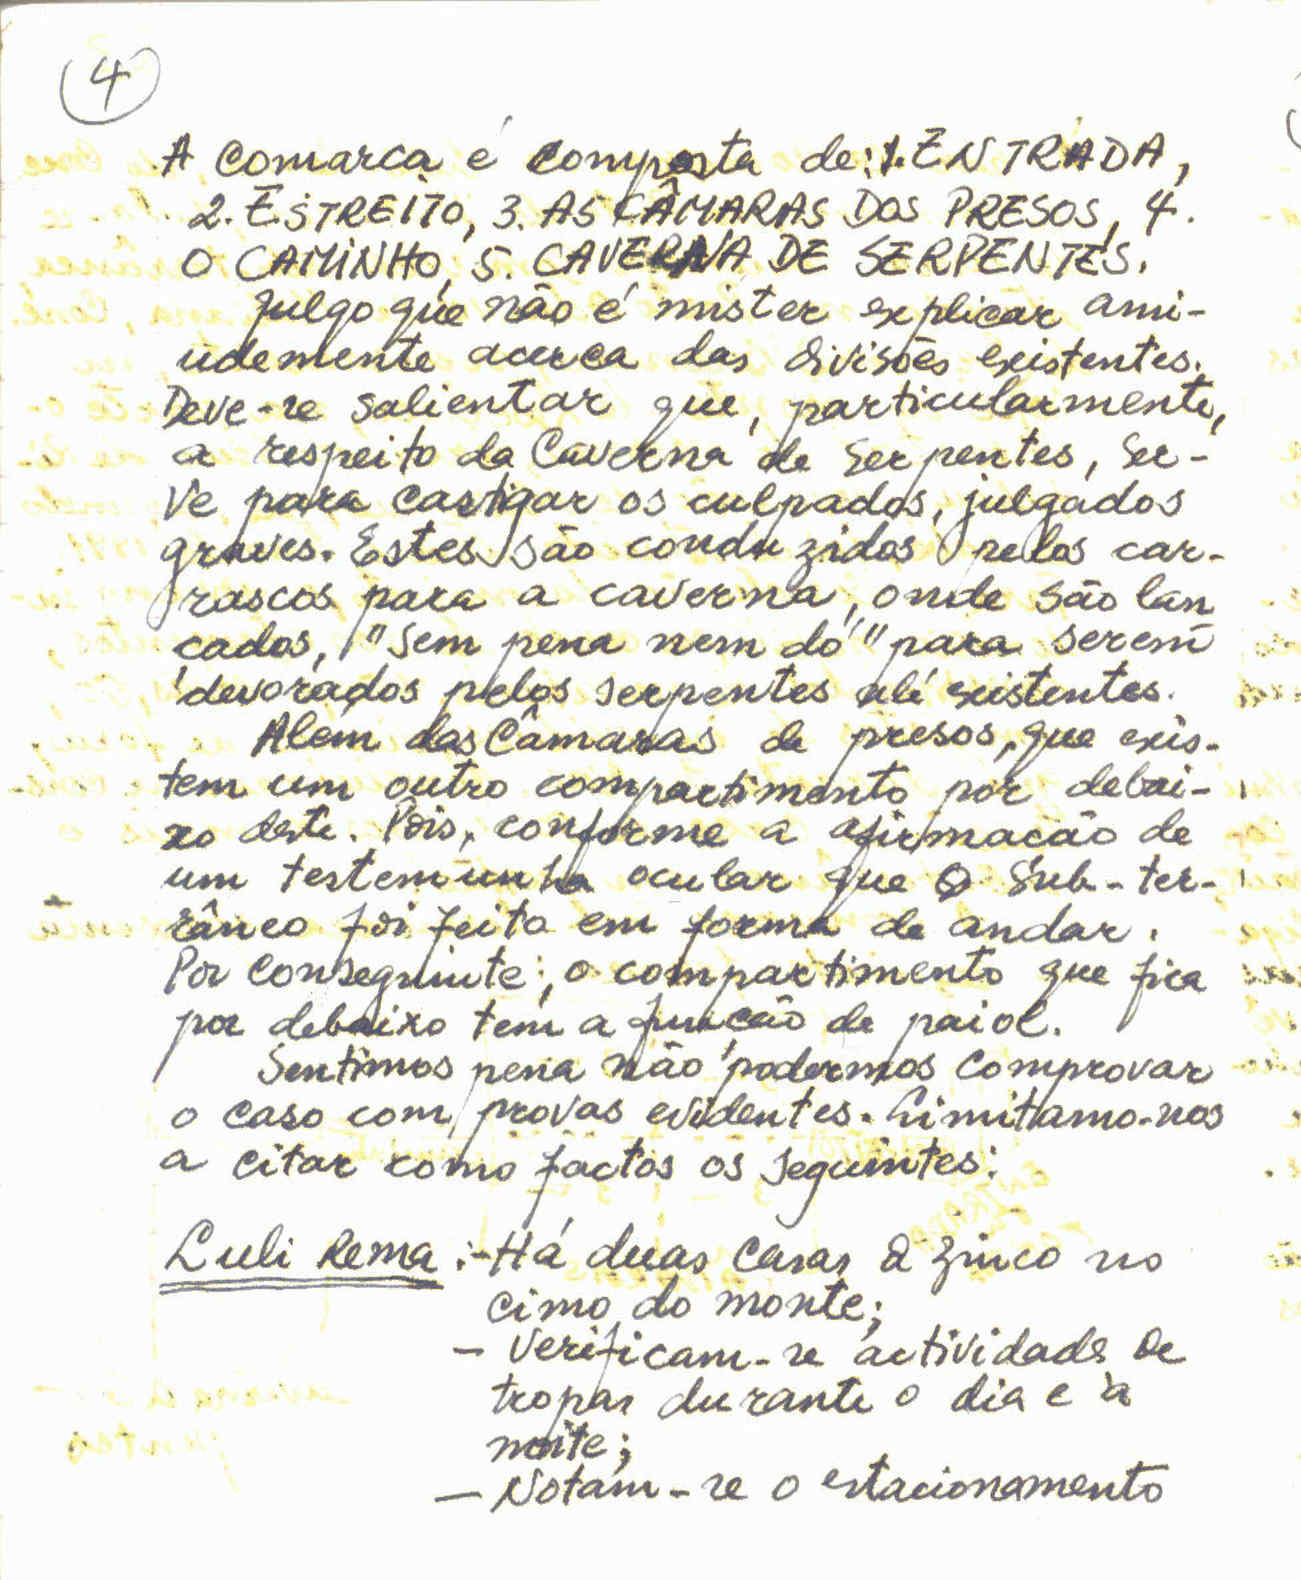 4
A Comarca é composta de: 1. ENTRADA,
2. ESTREITO, 3. AS CÂMARAS DOS PRESOS, 4.
O CAMINHO, 5. CAVERNA DE SERPENTES.
Julgo que não é mister explicar ami-
údemente acerca das divisões existentes.
Deve-se salientar que, particularmente,
a respeito da Caverna de Serpentes, ser-
ve para castigar os culpados, julgados
graves. Estes são conduzidos pelos car-
rascos para a caverna, onde são lan
çados, "sem pena nem dó" para serem
devorados pelos serpentes alí existentes.
Além das Câmaras de presos, que exis-
tem um outro compartimento por debai-
xo deste. Pois, conforme a afirmação de
um testemunha ocular que o Sub-ter-
râneo foi feito em forma de andar.
Por conseguinte, o compartimento que fica
por debaixo tem a função de paiol.
Sentimos pena não podermos comprovar
o caso com provas evidentes. Limitamo-nos
a citar como factos os seguintes:
Luli Rema :- Há duas casas de zinco no
cimo do monte;
- Verificam-se actividades de
tropas durante o dia e à
noite;
- Notam-se o estacionamento